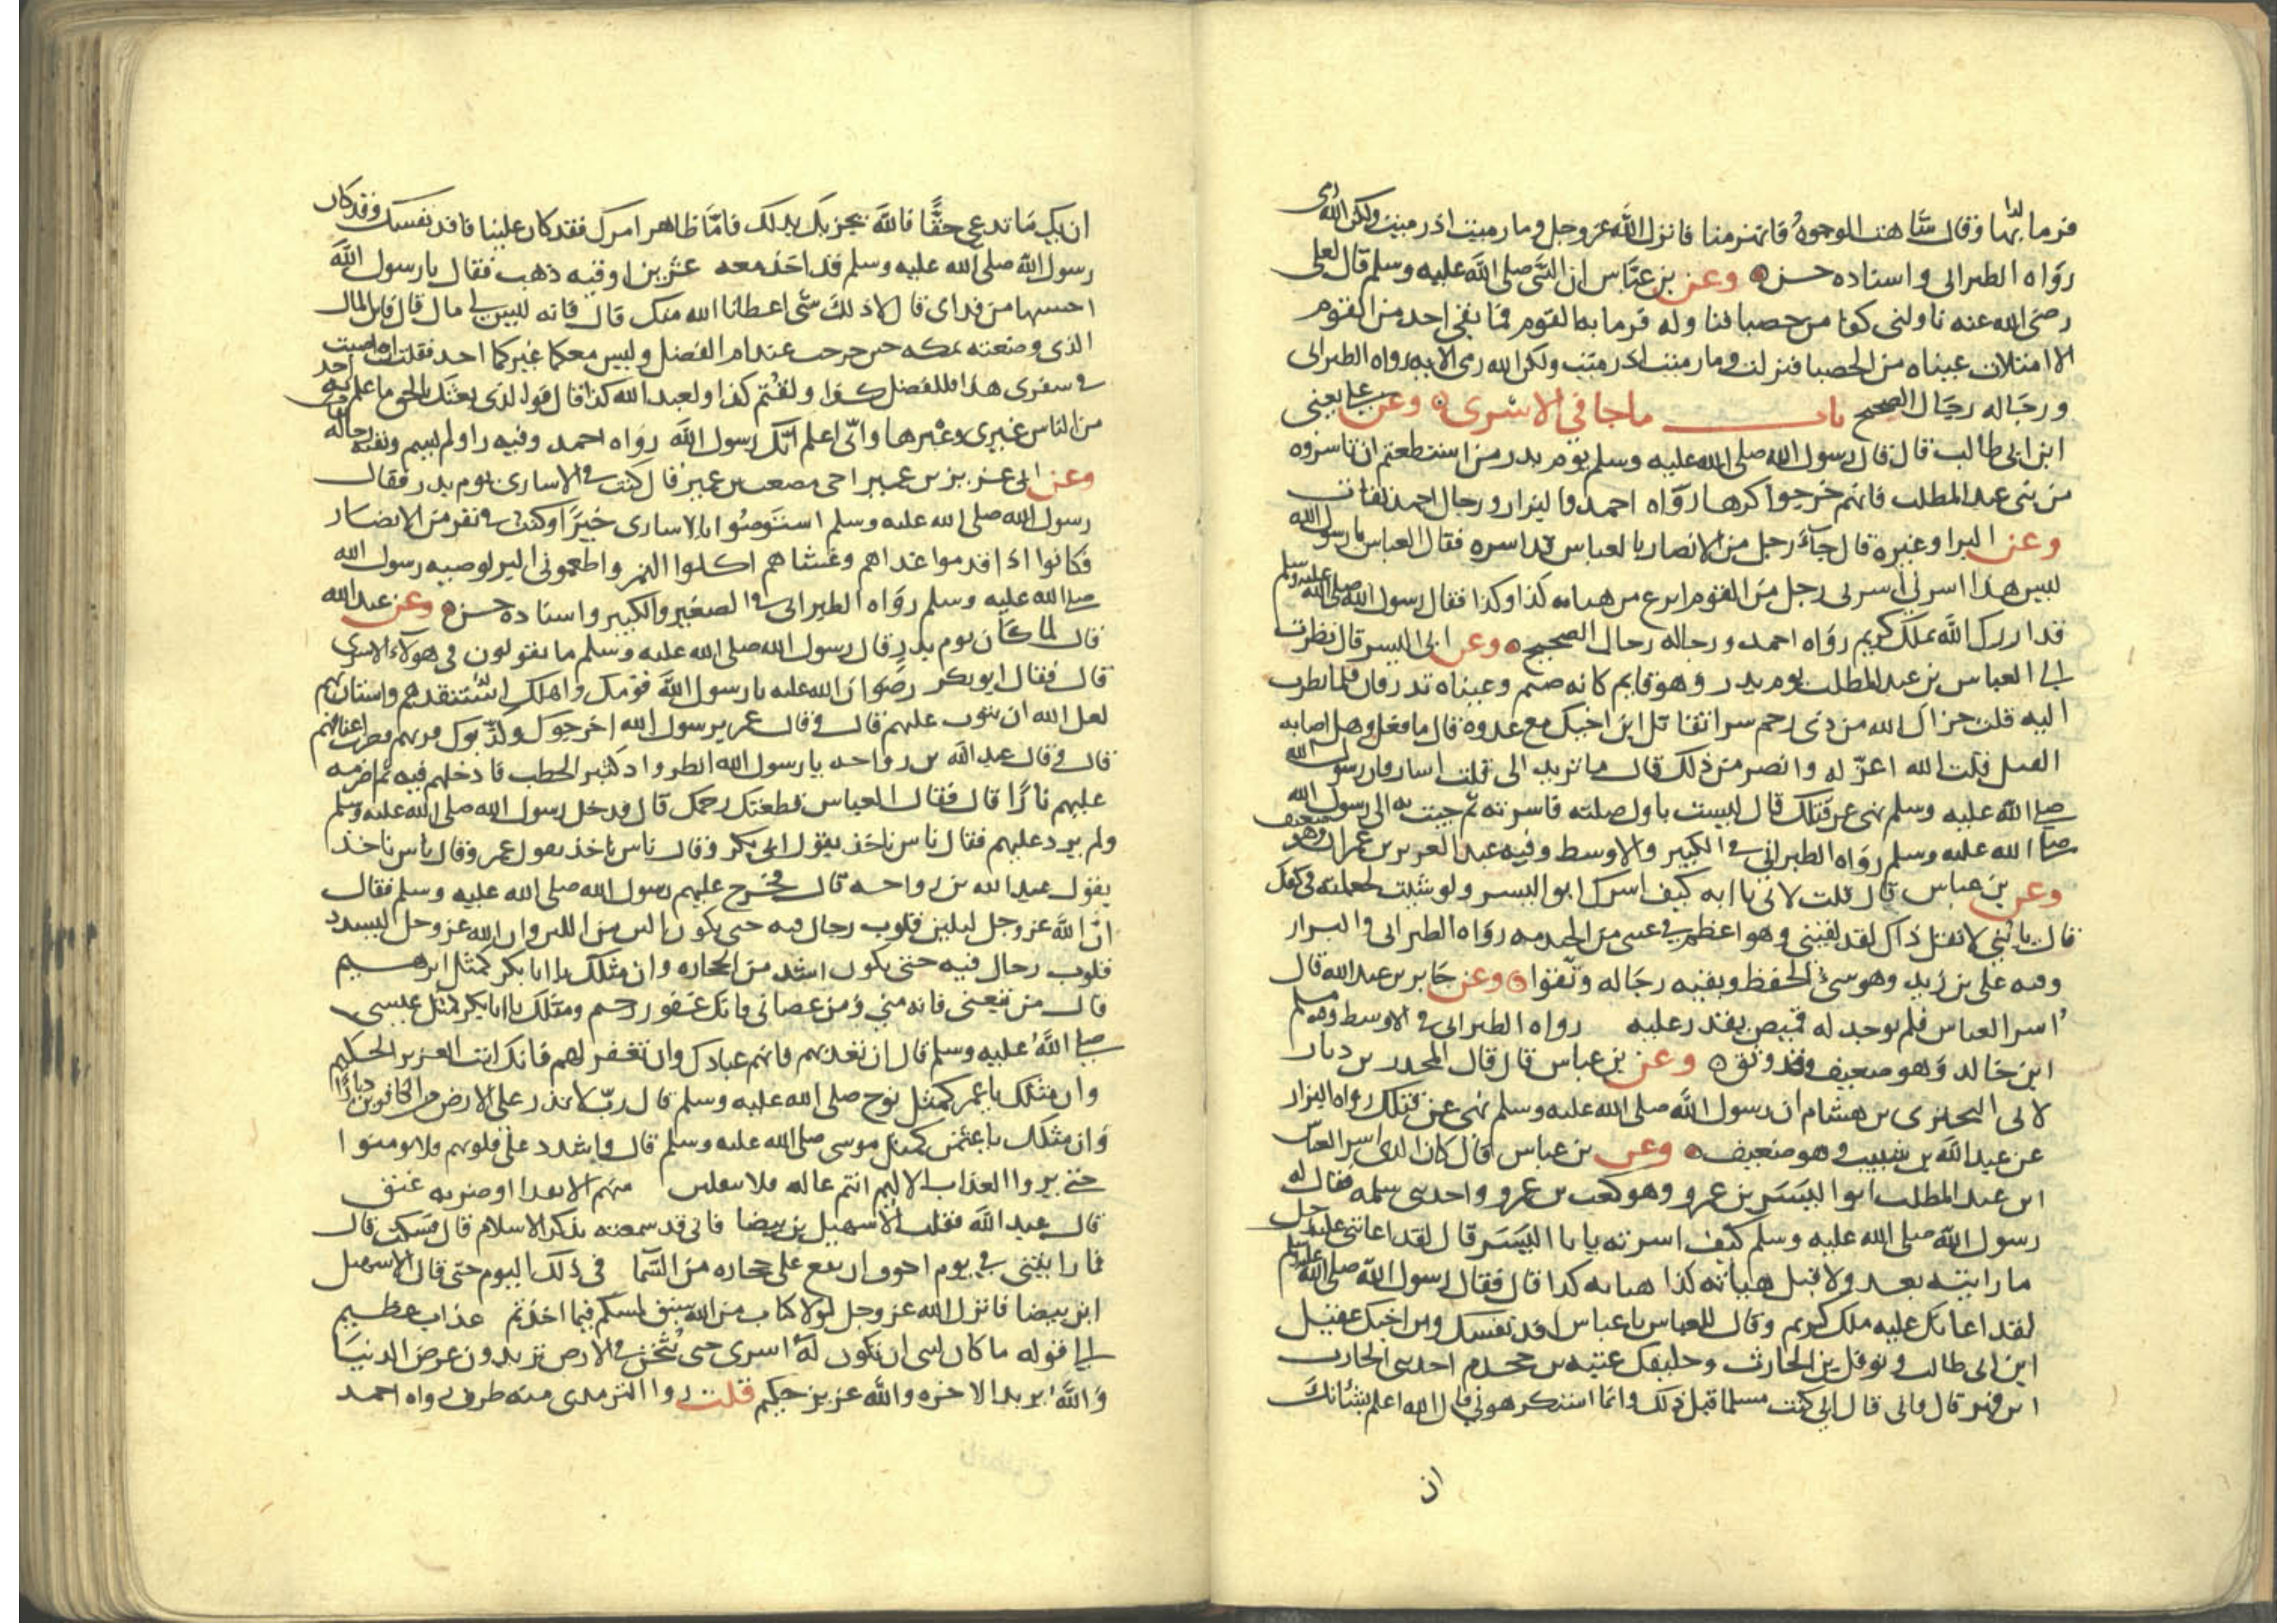 فرما بها وقال شاهت الوجوه فانهزمنا فانزل الله عز وجل وما رميت اذ رميت ولكن الله رمى
رواه الطبرانى واسناده حسن وعن بن عباس ان النبي صلى الله عليه وسلم قال لعلى
رضى الله عنه ناولنى كفا من حصبا فناوله فرما به القوم فما بقى احد من القوم
الا امتلات عيناه من الحصبا فنزلت وما رميت اذ رميت ولكن الله رمى الايه رواه الطبرانى
ورجاله رجال الصحيح باب ماجا فى الاسرى وعن على يعنى
ابن ابى طالب قال قال رسول الله صلى الله عليه وسلم يوم بدر من استطعتم ان تاسروه
من بنى عبد المطلب فانهم خرجوا كرها رواه احمد والبزار ورجال احمد ثقات
وعن البرا وغيره قال جآء رجل من الانصار بالعباس قد اسره فقال العباس يا رسول الله
ليس هذا اسرنى اسرنى رجل من القوم انزع من هياته كذا وكذا فقال رسول الله صلى الله عليه وسلم
قد ازرك الله بملك كريم رواه احمد ورجاله رجال الصحيح وعن ابى اليسر قال نظرت
الى العباس بن عبد المطلب يوم بدر وهو قايم كانه صنم وعيناه تذرفان فلما نظرت
اليه قلت جزاك الله من ذى رحم سرا اتقاتل ابن اخيك مع عدوه قال ما فعل وهل اصابه
القتل قلت الله اعز له وانصر من ذلك قال ما تريد الى قلت اسار فان رسول الله
صلى الله عليه وسلم نهى عن قتلك قال ليست باول صلته فاسرته ثم جيت به الى رسول الله
صلى الله عليه وسلم رواه الطبرانى فى الكبير والاوسط وفيه عبد العزيز بن عمران وهو ضعيف
وعن بن عباس قال قلت لابى يا ابه كيف اسرك ابو اليسر ولو شيت لجعلته فى كفك
قال يا بنى لا تقل ذاك لقد لقينى وهو اعظم فى عينى من الخندمه رواه الطبرانى والبزار
وفيه على بن زيد وهو سىء الحفظ وبقيه رجاله وثقوا وعن جابر بن عبد الله قال
اسر العباس فلم يوجد له قميص يقدر عليه رواه الطبرانى فى الاوسط وفيه مسلم
ابن خالد وهو ضعيف وقد وثق وعن بن عباس قال قال المجذر بن ديار
لابى البخترى بن هشام ان رسول الله صلى الله عليه وسلم نهى عن قتلك رواه البزار
عن عبد الله بن شبيب وهو ضعيف وعن بن عباس قال كان الذى اسر العباس
ابن عبد المطلب ابو اليسر بن عمرو وهو كعب بن عمرو واحد بنى سلمه فقال له
رسول الله صلى الله عليه وسلم كيف اسرته يا با اليسر قال لقد اعاننى عليه رجل
ما رايته بعد ولا قبل هياته كذا هياته كذا قال فقال رسول الله صلى الله عليه وسلم
لقد اعانك عليه ملك كريم وقال للعباس يا عباس افد نفسك وابن اخيك عقيل
ابن ابى طالب ونوفل بن الحارث وحليفك عتبه بن جحدم احد بنى الحارث
ابن فهر قال فابى قال انى كنت مسلما قبل ذلك وانما استكرهونى قال الله اعلم بشانك
ان
ان يك ما تدعى حقا فالله يجزيك بذلك فاما ظاهر امرك فقد كان علينا فافد نفسك وقد كان
رسول الله صلى الله عليه وسلم قد اخذ معه عشرين اوقيه ذهب فقال يا رسول الله
احسبها من فداى قال لا ذلك شى اعطانا الله منك قال فانه ليس لى مال قال فاين المال
الذى وضعته بمكه حين خرجت عند ام الفضل وليس معكما غيركما احد فقلت ان اصبت
فى سفرى هذا فللفضل كذا ولقثم كذا ولعبد الله كذا قال فو الذى بعثك بالحق ما علم به احد
من الناس غيرى وغيرها وانى اعلم انك رسول الله رواه احمد وفيه راو لم يسم وبقيه رجاله ثقات
وعن ابى عزيز بن عمير اخى مصعب بن عمير قال كنت فى الاسارى يوم بدر فقال
رسول الله صلى الله عليه وسلم استوصوا بالاسارى خيرا وكنت فى نفر من الانصار
فكانوا اذا قدموا غداهم وعشاهم اكلوا التمر واطعمونى البر لوصيه رسول الله
صلى الله عليه وسلم رواه الطبرانى فى الصغير والكبير واسناده حسن وعن عبد الله
قال لما كان يوم بدر قال رسول الله صلى الله عليه وسلم ما تقولون فى هولاء الاسرى
قال فقال ابو بكر رضوان الله عليه يا رسول الله قومك واهلك استنقذهم واستان بهم
لعل الله ان يتوب عليهم قال وقال عمر يرسول الله اخرجوك وكذبوك قربهم فاضرب اعناقهم
قال وقال عبد الله بن رواحه يا رسول الله انظر واد كثير الحطب فادخلهم فيه ثم اضرمه
عليهم نارا قال فقال العباس قطعتك رحمك قال فدخل رسول الله صلى الله عليه وسلم
ولم يرد عليهم فقال ناس ناخذ بقول ابى بكر وقال ناس ناخذ بقول عمر وقال ناس ناخذ
بقول عبد الله بن رواحه قال فخرج عليهم رسول الله صلى الله عليه وسلم فقال
ان الله عز وجل ليلين قلوب رجال فيه حتى يكون الين من اللبن وان الله عز وجل ليشدد
قلوب رجال فيه حتى يكون اشد من الحجاره وان مثلك يا ابا بكر كمثل ابرهيم
قال من تبعنى فانه منى ومن عصانى فانك غفور رحيم ومثلك يا ابا بكر كمثل عيسى
صلى الله عليه وسلم قال ان تعذبهم فانهم عبادك وان تغفر لهم فانك انت العزيز الحكيم
وان مثلك يا عمر كمثل نوح صلى الله عليه وسلم قال رب لا تذر على الارض من الكافرين ديارا
وان مثلك يا عمر كمثل موسى صلى الله عليه وسلم قال واشدد على قلوبهم فلا يومنوا
حتى يروا العذاب الاليم انتم عاله فلا منهم الا بفدا او ضربه عنق
قال عبد الله فقلت الا سهيل بن بيضا فانى قد سمعته يذكر الاسلام قال فسكت قال
فما رايتنى فى يوم اخوف ان تقع على حجاره من السما فى ذلك اليوم حتى قال الا سهيل
ابن بيضا فانزل الله عز وجل لولا كتاب من الله سبق لمسكم فيما اخذتم عذاب عظيم
الى قوله ما كان لنبى ان تكون له اسرى حتى يثخن فى الارض تريدون عرض الدنيا
والله يريد الاخره والله عزيز حكيم قلت روا الترمذى منه طرف رواه احمد